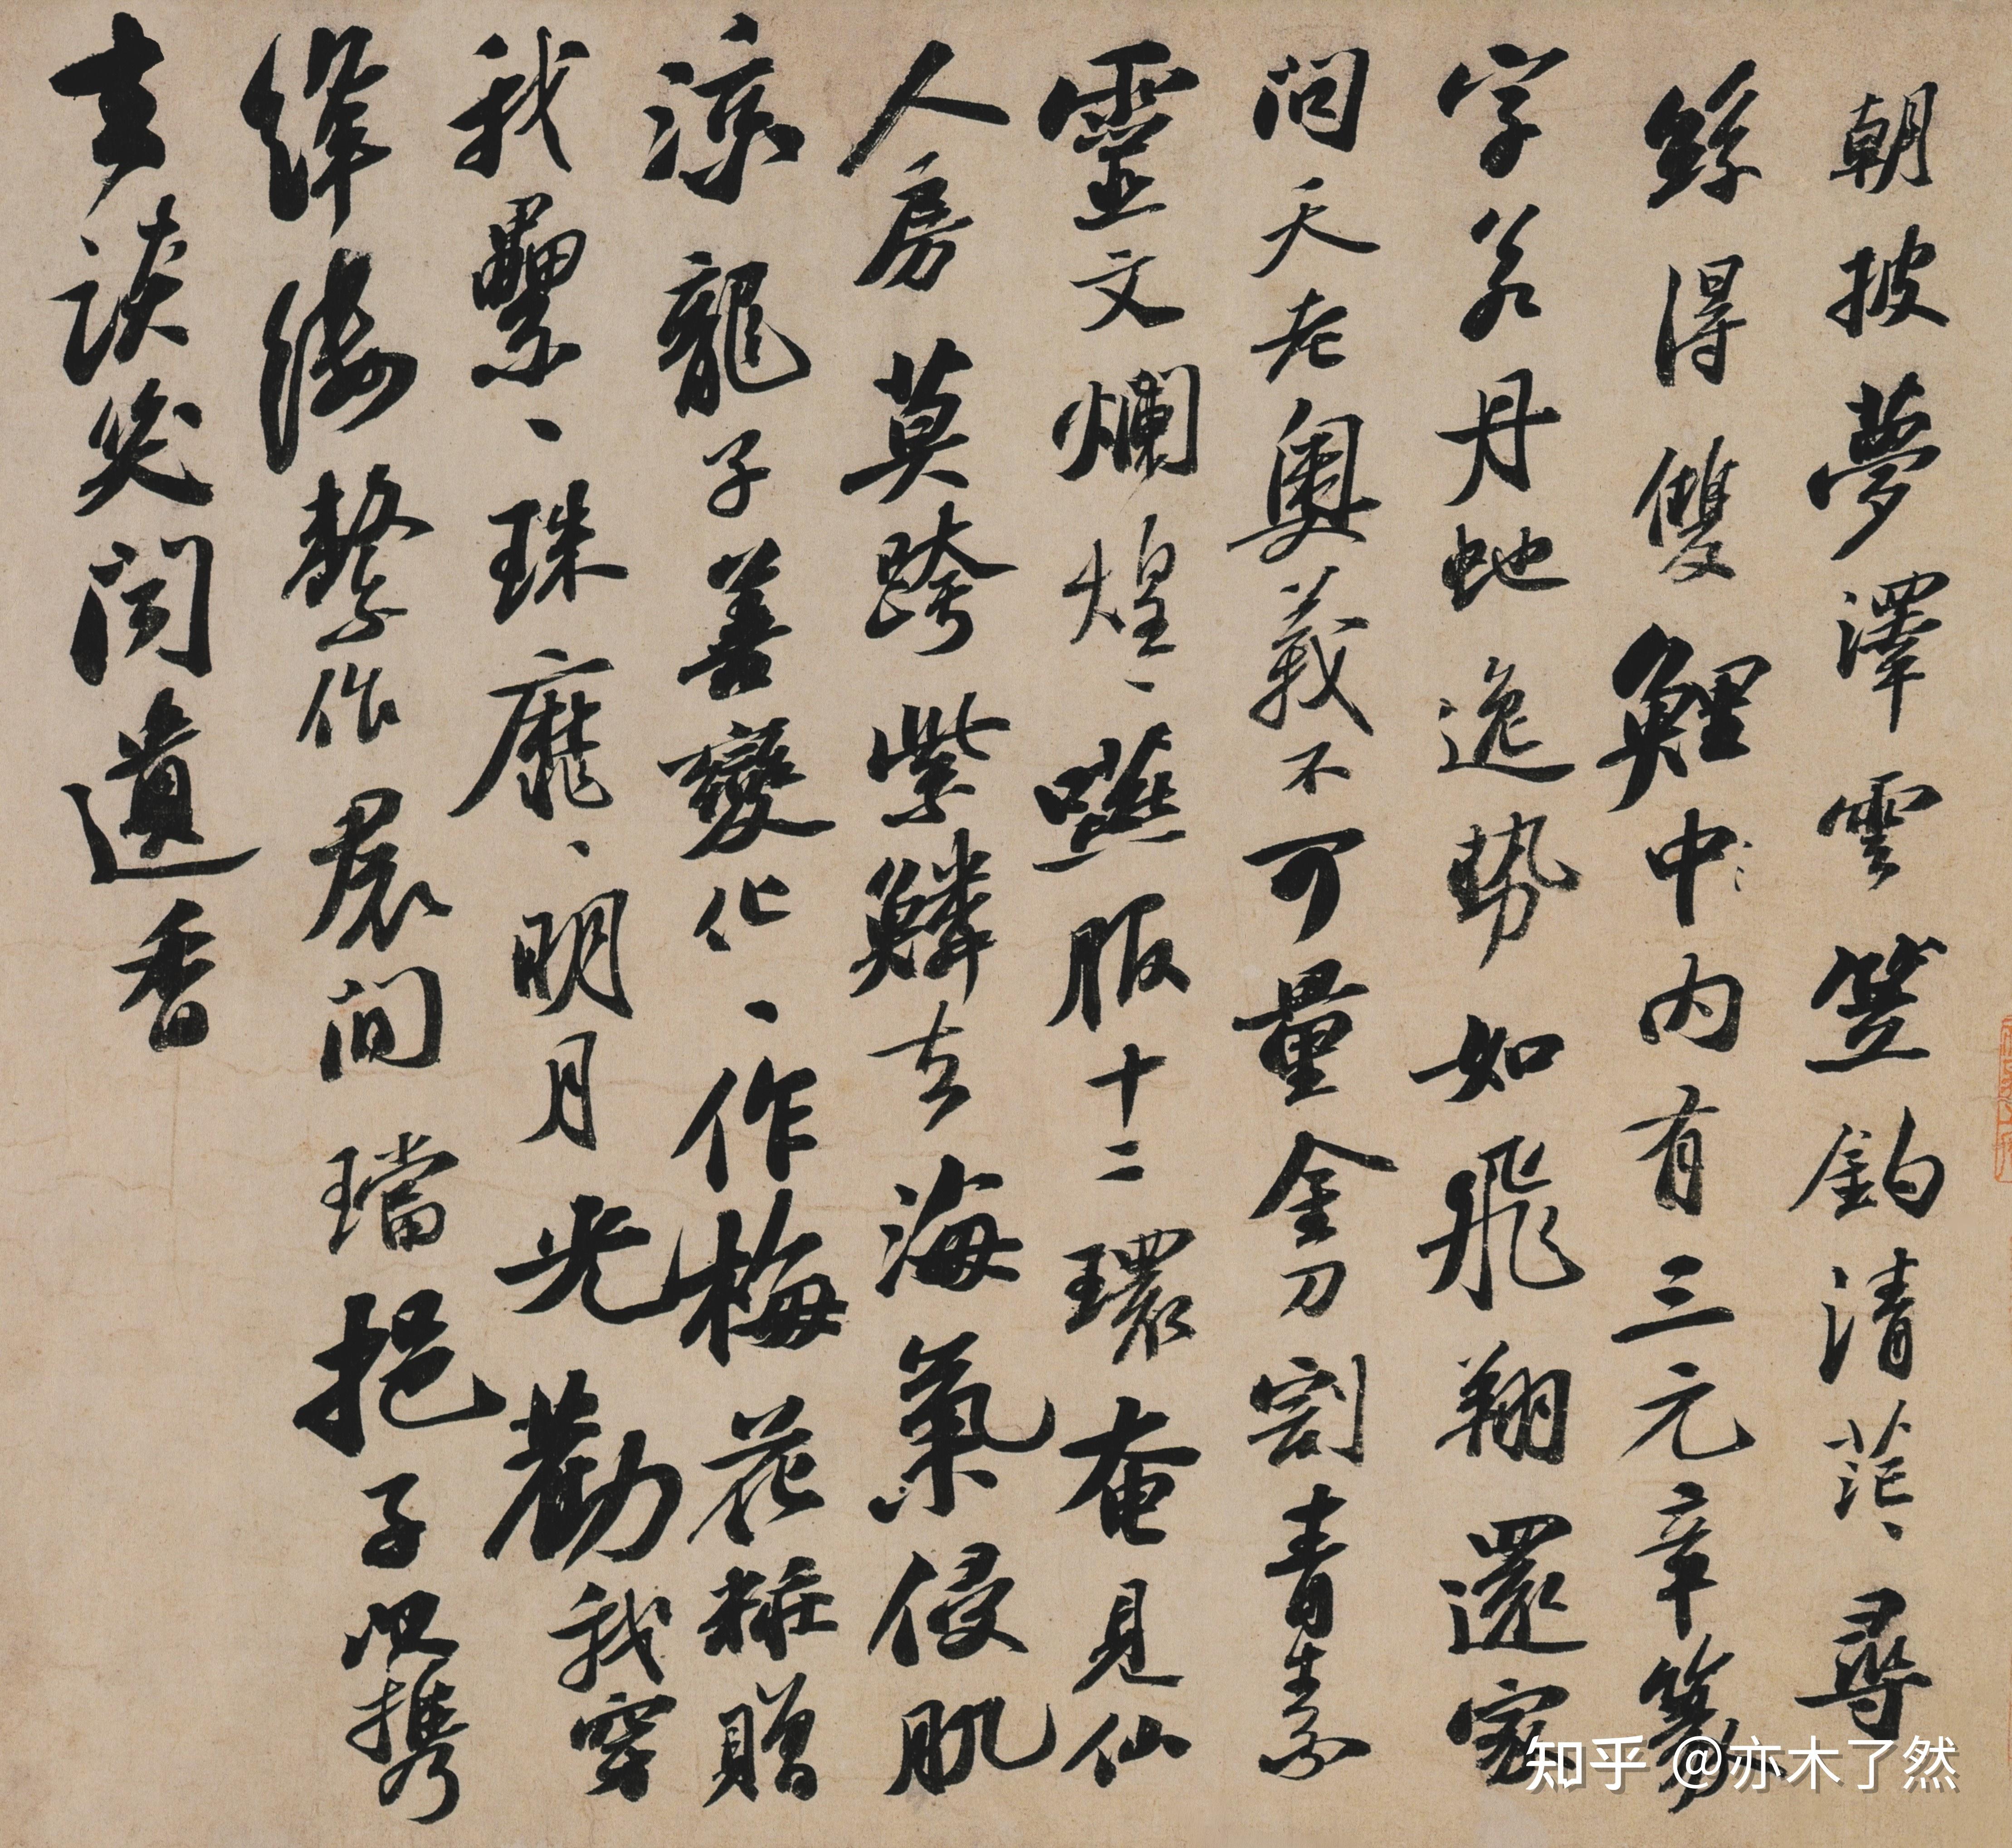 朝披夢澤雲笠釣清茫〻尋
絲得雙鯉中内有三元章篆
字若丹虵逸勢如飛翔還家
問天老奧義不可量金刀割青素
靈文爛煌〻嚥服十二環奄見仙
人房莫跨紫鱗去海氣侵肌
涼龍子善變化〻作梅花粧贈
我纍〻珠靡〻明月光勸我穿
絳縷繫作裠間璫挹子以携
去談笑聞遺香
知乎 @亦木了然